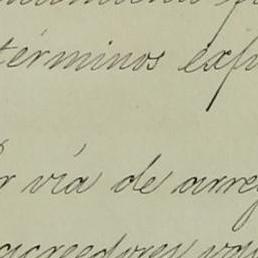 términos exp
r vía de arreg
acreedores